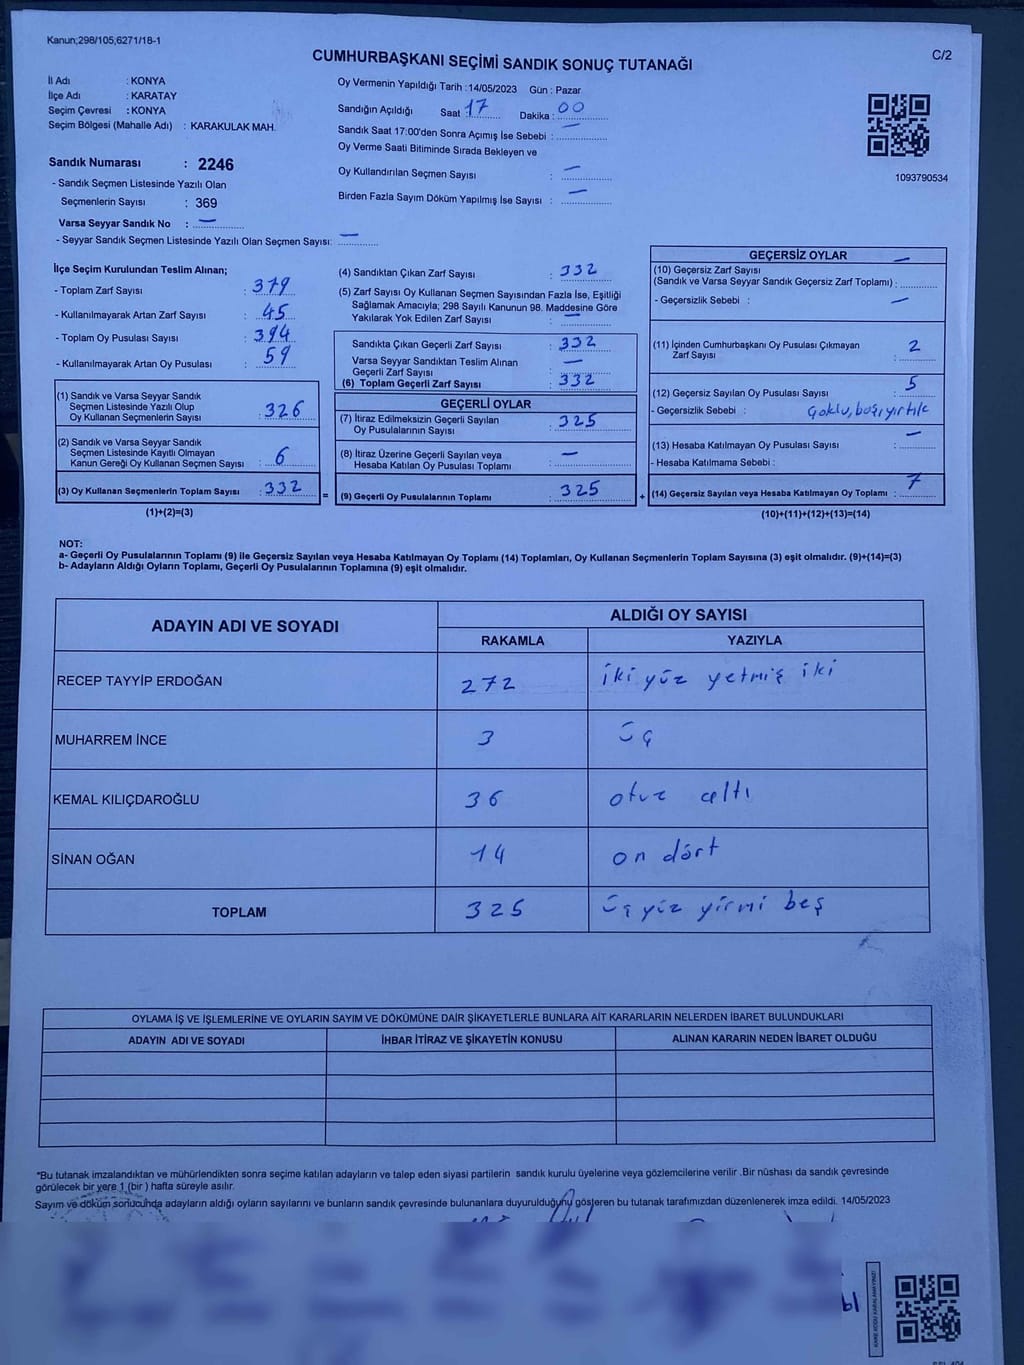 Kanun;298/105;6271/18-1
C/2
CUMHURBAŞKANI SEÇİMİ SANDIK SONUÇ TUTANAĞI
İl Adı : KONYA
İlçe Adı : KARATAY
Seçim Çevresi : KONYA
Seçim Bölgesi (Mahalle Adı) : KARAKULAK MAH.
Sandık Numarası : 2246
- Sandık Seçmen Listesinde Yazılı Olan
Seçmenlerin Sayısı : 369
Varsa Seyyar Sandık No : —
- Seyyar Sandık Seçmen Listesinde Yazılı Olan Seçmen Sayısı: —
Oy Vermenin Yapıldığı Tarih :14/05/2023 Gün : Pazar
Sandığın Açıldığı Saat : 17 Dakika : 00
Sandık Saat 17:00'den Sonra Açımış İse Sebebi : —
Oy Verme Saati Bitiminde Sırada Bekleyen ve
Oy Kullandırılan Seçmen Sayısı : —
Birden Fazla Sayım Döküm Yapılmış İse Sayısı : —
1093790534
İlçe Seçim Kurulundan Teslim Alınan;
- Toplam Zarf Sayısı : 379
- Kullanılmayarak Artan Zarf Sayısı : 45
- Toplam Oy Pusulası Sayısı : 394
- Kullanılmayarak Artan Oy Pusulası : 59
(1) Sandık ve Varsa Seyyar Sandık
Seçmen Listesinde Yazılı Olup
Oy Kullanan Seçmenlerin Sayısı : 326
(2) Sandık ve Varsa Seyyar Sandık
Seçmen Listesinde Kayıtlı Olmayan
Kanun Gereği Oy Kullanan Seçmen Sayısı : 6
(3) Oy Kullanan Seçmenlerin Toplam Sayısı : 332
(1)+(2)=(3)
=
(4) Sandıktan Çıkan Zarf Sayısı : 332
(5) Zarf Sayısı Oy Kullanan Seçmen Sayısından Fazla İse, Eşitliği
Sağlamak Amacıyla; 298 Sayılı Kanunun 98. Maddesine Göre
Yakılarak Yok Edilen Zarf Sayısı : —
Sandıkta Çıkan Geçerli Zarf Sayısı : 332
Varsa Seyyar Sandıktan Teslim Alınan
Geçerli Zarf Sayısı : —
(6) Toplam Geçerli Zarf Sayısı : 332
GEÇERLİ OYLAR
(7) İtiraz Edilmeksizin Geçerli Sayılan
Oy Pusulalarının Sayısı : 325
(8) İtiraz Üzerine Geçerli Sayılan veya
Hesaba Katılan Oy Pusulası Toplamı : —
(9) Geçerli Oy Pusulalarının Toplamı : 325
+
GEÇERSİZ OYLAR
(10) Geçersiz Zarf Sayısı
(Sandık ve Varsa Seyyar Sandık Geçersiz Zarf Toplamı) : —
- Geçersizlik Sebebi : —
(11) İçinden Cumhurbaşkanı Oy Pusulası Çıkmayan
Zarf Sayısı : 2
(12) Geçersiz Sayılan Oy Pusulası Sayısı : 5
- Geçersizlik Sebebi : Çoklu, boş, yırtık
(13) Hesaba Katılmayan Oy Pusulası Sayısı : —
- Hesaba Katılmama Sebebi :
(14) Geçersiz Sayılan veya Hesaba Katılmayan Oy Toplamı : 7
(10)+(11)+(12)+(13)=(14)
NOT:
a- Geçerli Oy Pusulalarının Toplamı (9) ile Geçersiz Sayılan veya Hesaba Katılmayan Oy Toplamı (14) Toplamları, Oy Kullanan Seçmenlerin Toplam Sayısına (3) eşit olmalıdır. (9)+(14)=(3)
b- Adayların Aldığı Oyların Toplamı, Geçerli Oy Pusulalarının Toplamına (9) eşit olmalıdır.
ADAYIN ADI VE SOYADI ALDIĞI OY SAYISI
RAKAMLA YAZIYLA
RECEP TAYYİP ERDOĞAN 272 iki yüz yetmiş iki
MUHARREM İNCE 3 üç
KEMAL KILIÇDAROĞLU 36 otuz altı
SİNAN OĞAN 14 on dört
TOPLAM 325 üç yüz yirmi beş
OYLAMA İŞ VE İŞLEMLERİNE VE OYLARIN SAYIM VE DÖKÜMÜNE DAİR ŞİKAYETLERLE BUNLARA AİT KARARLARIN NELERDEN İBARET BULUNDUKLARI
ADAYIN ADI VE SOYADI İHBAR İTİRAZ VE ŞİKAYETİN KONUSU ALINAN KARARIN NEDEN İBARET OLDUĞU
*Bu tutanak imzalandıktan ve mühürlendikten sonra seçime katılan adayların ve talep eden siyasi partilerin sandık kurulu üyelerine veya gözlemcilerine verilir .Bir nüshası da sandık çevresinde
görülecek bir yere 1 (bir ) hafta süreyle asılır.
Sayım ve döküm sonucunda adayların aldığı oyların sayılarını ve bunların sandık çevresinde bulunanlara duyurulduğunu gösteren bu tutanak tarafımızdan düzenlenerek imza edildi. 14/05/2023